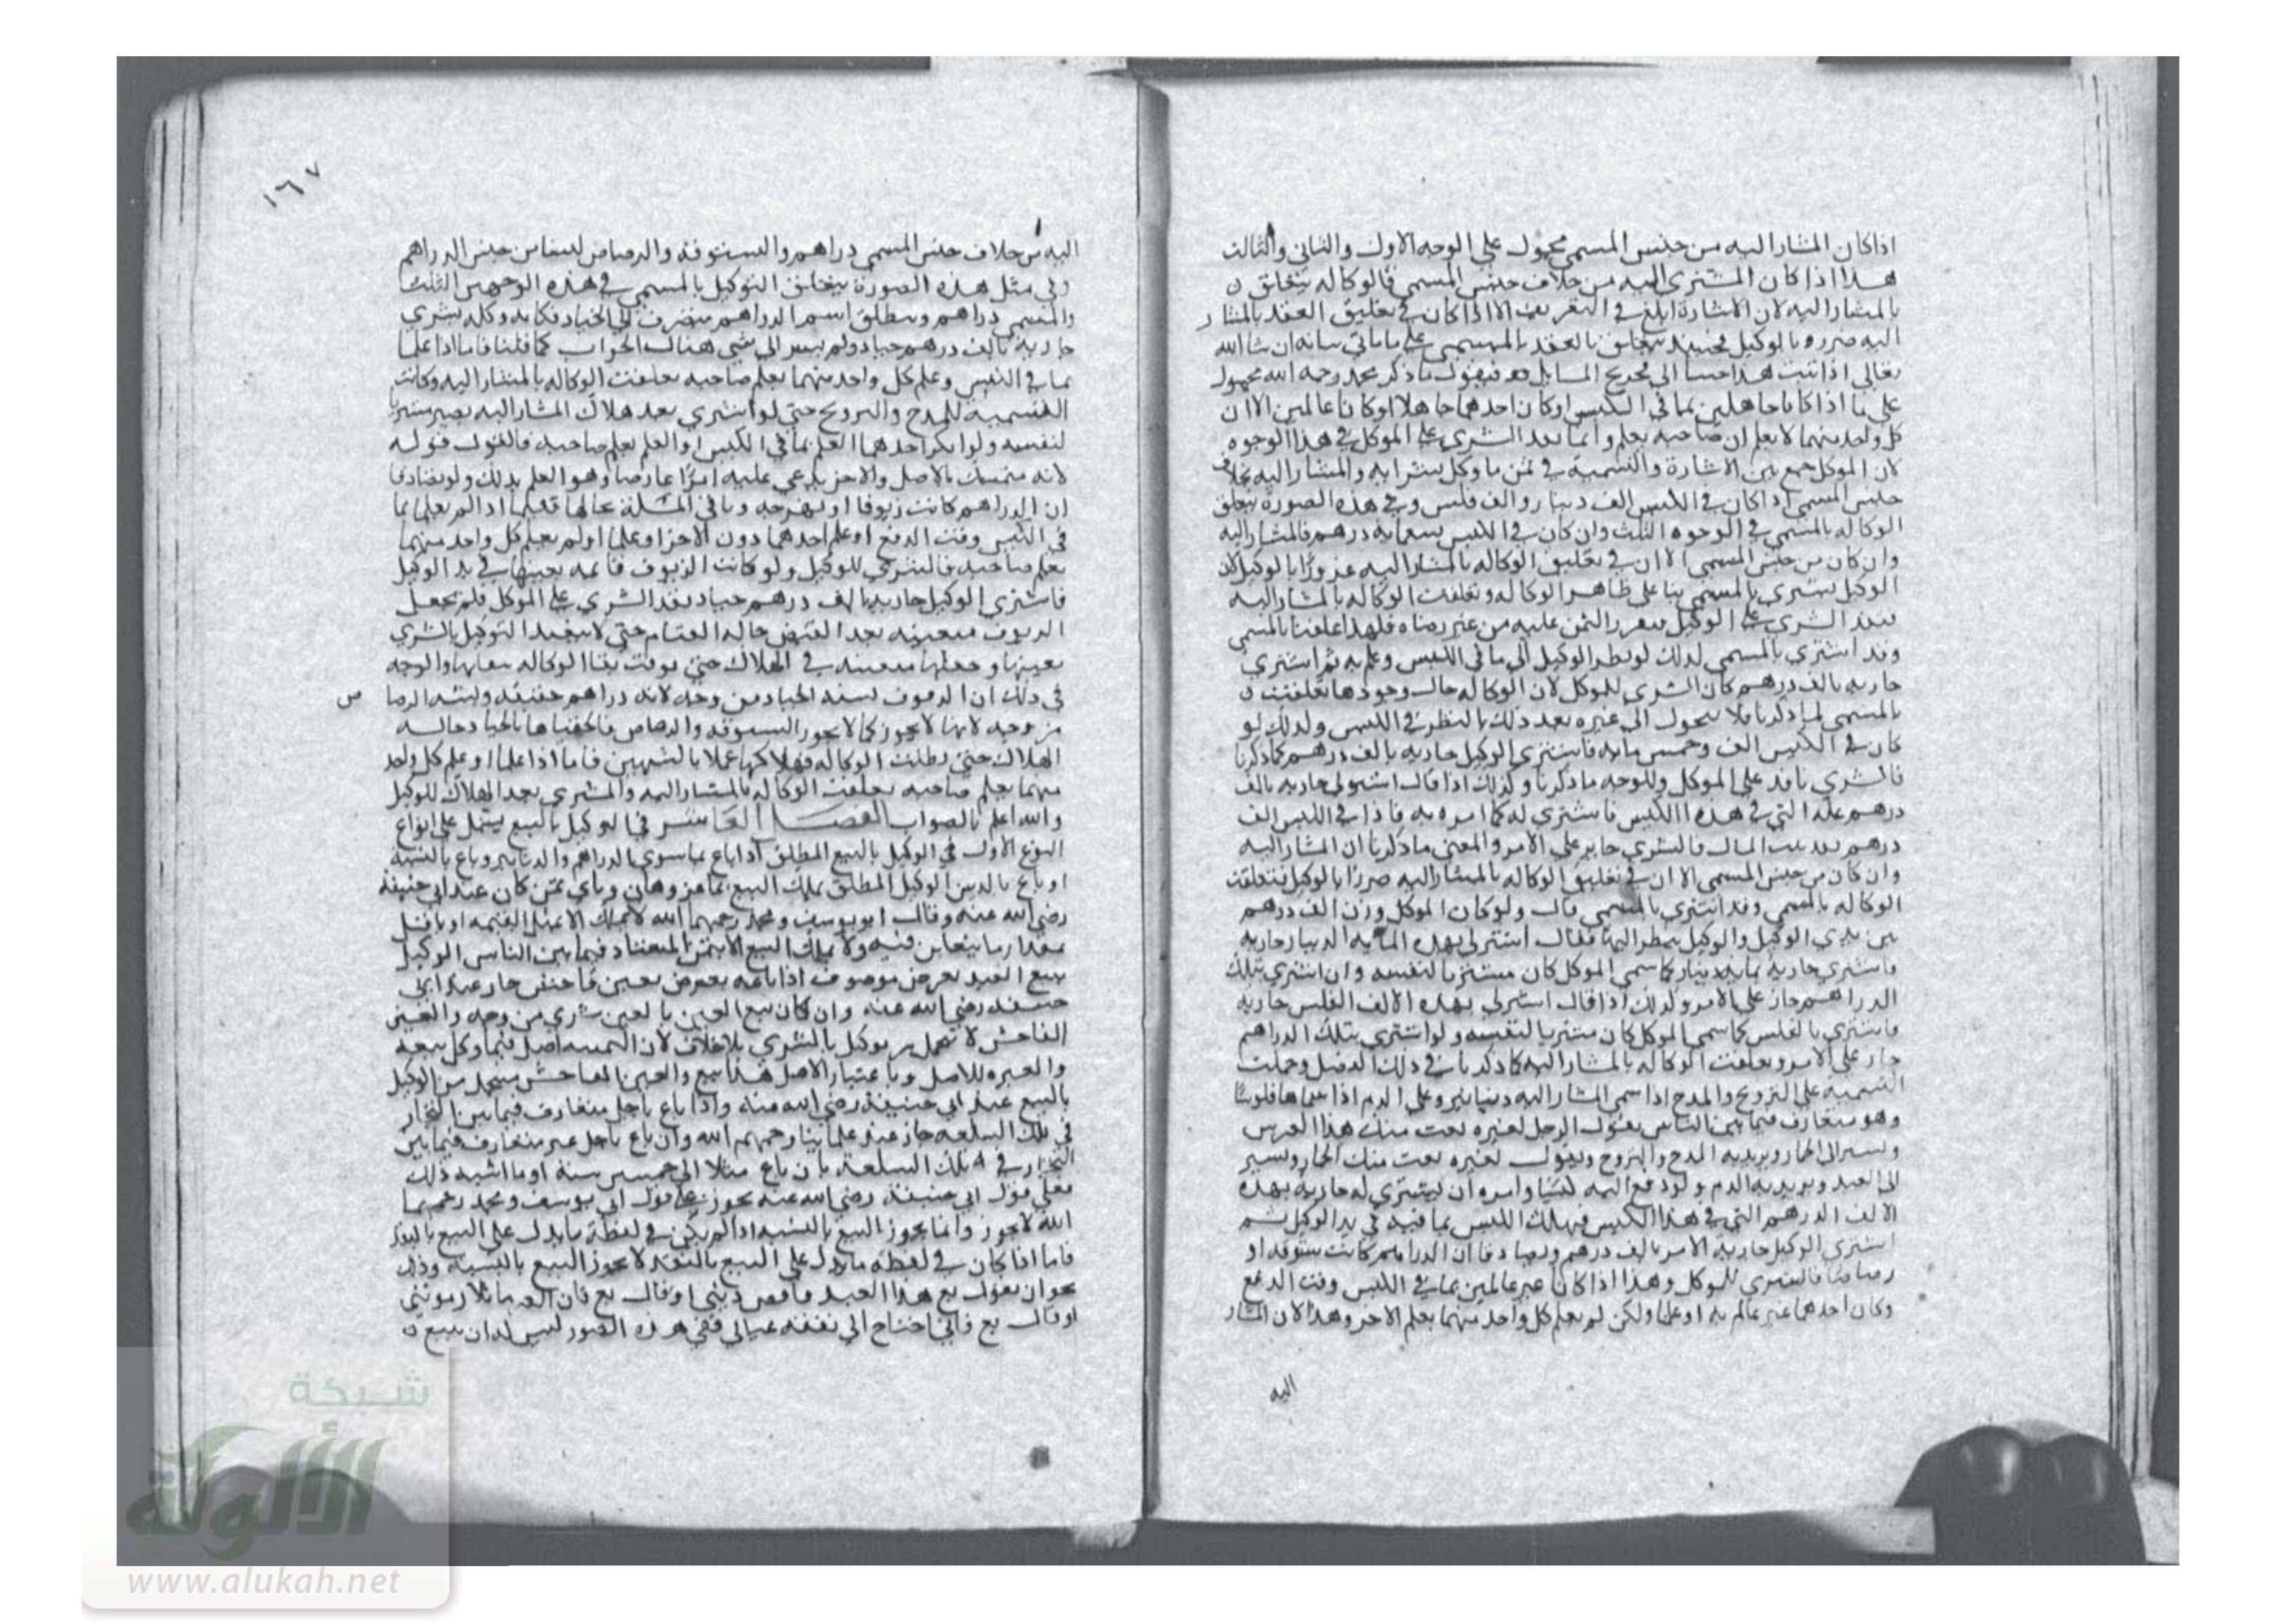 اذا كان المشار اليه من جنس المسمى محمول على الوجه الاول والثاني والثالث
هذا اذا كان المشترى اليه من خلاف جنس المسمى فالوكاله يتعلق
بالمشار اليه لان الاشارة ابلغ في التعريف الا اذا كان في تعليق العقد بالمشار
اليه ضررو بالوكيل فحينئذ يتعلق العقد بالمسمى على ما ياتي بيانه ان شا الله
تعالى اذا ثبت هذا جينا الى تخريج المسايل فنقول ما ذكر محمد رحمه الله محمول
على ما اذا كانا جاهلين بما في الكيس او كان احدهما جاهلا او كانا عالمين الا ان
كل واحد منهما لا يعلم ان صاحبه يعلم وانما نفذ الشرى على الموكل في هذا الوجوه
لان الموكل جمع بين الاشارة والتسمية في ثمن ما وكل بشرايه والمشار اليه بخلاف
جنس المسمى اذا كان في الكيس الف دينار و الف فلس وفي هذه الصورة يتعلق
الوكاله بالمسمى في الوجوه الثلث وان كان في الكيس تسعمايه درهم فالمشار اليه
وان كان من جنس المسمى الا ان في تعليق الوكاله بالمشار اليه غرورا بالوكيل لان
الوكيل يشتري بالمسمى بنا على ظاهر الوكاله ولو تعلقت الوكاله بالمشار اليه
نفذ الشرى على الوكيل فيتقرر الثمن عليه من غير رضاه فلهذا علقنا بالمسمى
وقد اشترى بالمسمى لذلك لو نظر الوكيل الى ما في الكيس وعلم به ثم اشترى
جاريه بالف درهم كان الشرى للموكل لان الوكاله حال وجودها تعلقت
بالمسمى لما ذكرنا فلا يتحول الى غيره بعد ذلك بالنظر في الكيس ولذلك لو
كان في الكيس الف وخمس مايه فاشترى الوكيل جاريه بالف درهم كما ذكرنا
فالشرى نافذ على الموكل وللوجه ما ذكرنا وكذلك اذا قال اشتر لي جاريه بالف
درهم غله التي في هذا الكيس فاشترى له كما امره به فاذا في الكيس الف
درهم نقد بيت المال فالشرى جايز على الامر والمعنى ما ذكرنا ان المشار اليه
وان كان من جنس المسمى الا ان في تعليق الوكاله بالمشار اليه ضررا بالوكيل فتعلقت
الوكاله بالمسمى وقد اشترى بالمسمى قال ولو كان الموكل وزن الف درهم
بين يدي الوكيل والوكيل ينظر اليها فقال اشتر لي بهذه المايه الدينار جاريه
فاشترى جارية بمايه دينار كما سمى الموكل كان مشتريا لنفسه وان اشترى بتلك
الدراهم جاز على الامر وكذلك اذا قال اشتر لي بهذه الالف الفلس جاريه
فاشترى بالفلس كما سمى الموكل كان مشتريا لنفسه ولو اشترى بتلك الدراهم
جاز على الامر وتعلقت الوكاله بالمشار اليه كما ذكرنا في ذلك الفصل وحملت
التسميه على الترويج والمدح اذا سمى المشار اليه دنانير وعلى الذم اذا سماها فلوسا
وهو متعارف فيما بين الناس يقول الرجل لغيره بعت منك هذا الفرس
ويشير الى الحمار ويريد به المدح والتروج ويقول لغيره بعت منك الحمار ويشير
الى العبد ويريد به الذم ولو دفع اليه كيسا وامره ان يشتري له جارية بهذه
الالف الدرهم التي في هذا الكيس فهلك الكيس بما فيه في يد الوكيل ثم
اشترى الوكيل جارية الامر بالف درهم وتصادقا ان الدراهم كانت ستوقه او
رصاصا فالشرى للموكل وهذا اذا كانا غير عالمين بما في الكيس وقت الدفع
وكان احدهما غير عالم به او علما ولكن لم يعلم كل واحد منهما بعلم الاخر وهذا لان المشار
اليه
١٦٧
اليه من خلاف جنس المسمى دراهم والستوقه والرصاص ليسا من جنس الدراهم
وفي مثل هذه الصورة يتعلق التوكيل بالمسمى في هذه الوجوه الثلث
والمسمى دراهم ومطلق اسم الدراهم ينصرف الى الجياد فكانه وكله بشرى
جارية بالف درهم جياد ولم يشر الى شي هناك الجواب كما قلنا فاما اذا علما
بما في الكيس وعلم كل واحد منهما بعلم صاحبه تعلقت الوكاله بالمشار اليه وكانت
التسميه للمدح والترويج حتى لو اشترى بعد هلاك المشار اليه يصير مشتريا
لنفسه ولو انكر احدهما العلم بما في الكيس او العلم بعلم صاحبه فالقول قوله
لانه متمسك بالاصل والاخر يدعي عليه امرا عارضا وهو العلم بذلك ولو تصادقا
ان الدراهم كانت زيوفا او نبهرجه وباقي المسئلة بحالها فعلما اذا لم يعلما بما
في الكيس وقت الدفع او علم احدهما دون الاخر او علما او لم يعلم كل واحد منهما
بعلم صاحبه فالشرى للوكيل ولو كانت الزيوف قائمه بعينها في يد الوكيل
فاشترى الوكيل جاريه بالف درهم جياد نفذ الشرى على الموكل فلم تجعل
الزيوف متعينه بعد القبض حاله القيام حتى لا يتقيد التوكيل بالشرى
بعينها وجعلها متعينه في الهلاك حتى توقت بقا الوكاله ببقائها والوجه
في ذلك ان الزيوف تشبه الجياد من وجه لانه دراهم حقيقه وتشبه الرصا ص
من وجه لانها لا تجوز كما لا تجوز الستوقه والرصاص فالحقناها بالجياد حاله
الهلاك حتى بطلت الوكاله بهلاكها عملا بالشبهين فاما اذا علما او علم كل واحد
منهما بعلم صاحبه تعلقت الوكاله بالمشار اليه والمشترى بعد الهلاك للوكيل
والله اعلم بالصواب الفصل العاشر في الوكيل بالبيع يشتمل على انواع
النوع الاول في الوكيل بالبيع المطلق اذا باع بما سوى الدراهم والدنانير وباع بالنسيه
او باع بالدين الوكيل المطلق يملك البيع بما عز وهان وباي ثمن كان عند ابي حنيفة
رضي الله عنه وقال ابو يوسف ومحمد رحمهما الله لا يملك الا بمثل القيمه او باقل
مقدار ما يتغابن فيه ولا يملك البيع الا بثمن المعتاد فيما بين الناس الوكيل
ببيع العبد بعرض موصوف اذا باعه بعرض بعين فاحش جاز عند ابي
حنيفه رضي الله عنه وان كان بيع العين بالعين شرى من وجه والغبن
الفاحش لا يتحمل من توكيل بالشرى بلا خلاف لان التسميه اصل فيما وكل ببيعه
والعبره للاصل وباعتبار الاصل هذا بيع والغبن الفاحش يتحمل من الوكيل
بالبيع عند ابي حنيفة رضي الله عنه واذا باع باجل متعارف فيما بين التجار
في تلك السلعه جاز عند علمائنا رحمهم الله وان باع باجل غير متعارف فيما بين
التجار في تلك السلعة بان باع مثلا الى خمسين سنة او ما اشبه ذلك
فعلى قول ابي حنيفة رضي الله عنه يجوز وعلى قول ابي يوسف ومحمد رحمهما
الله لا يجوز وانما يجوز البيع بالنسيه اذا لم يكن في لفظه ما يدل على البيع بالنقد
فاما اذا كان في لفظه ما يدل على البيع بالنقد لا يجوز البيع بالنسيه وذلك
نحو ان يقول بع هذا العبد فاقض ديني او قال بع فان الغرما يلازمونني
او قال بع فاني احتاج الى نفقه عيالي ففي هذه الصور ليس له ان يبيع
شبكة
الألوكة
www.alukah.net